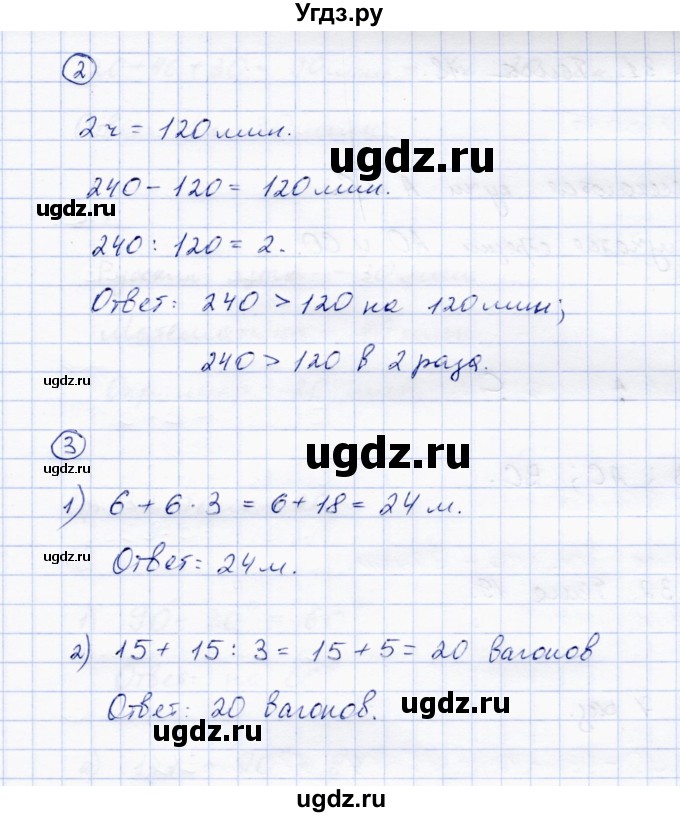 Угдз.ру
2
2 ч = 120 мин.
ugdz.ru
240 - 120 = 120 мин.
ugdz.ru
240 : 120 = 2.
Ответ: 240 > 120 на 120 мин;
240 > 120 в 2 раза.
ugdz.ru
3
ugdz.ru
ugdz.ru
1) 6 + 6 · 3 = 6 + 18 = 24 м.
Ответ: 24 м.
ugdz.ru
2) 15 + 15 : 3 = 15 + 5 = 20 вагонов
Ответ: 20 вагонов.
ugdz.ru
ugdz.ru
ugdz.ru